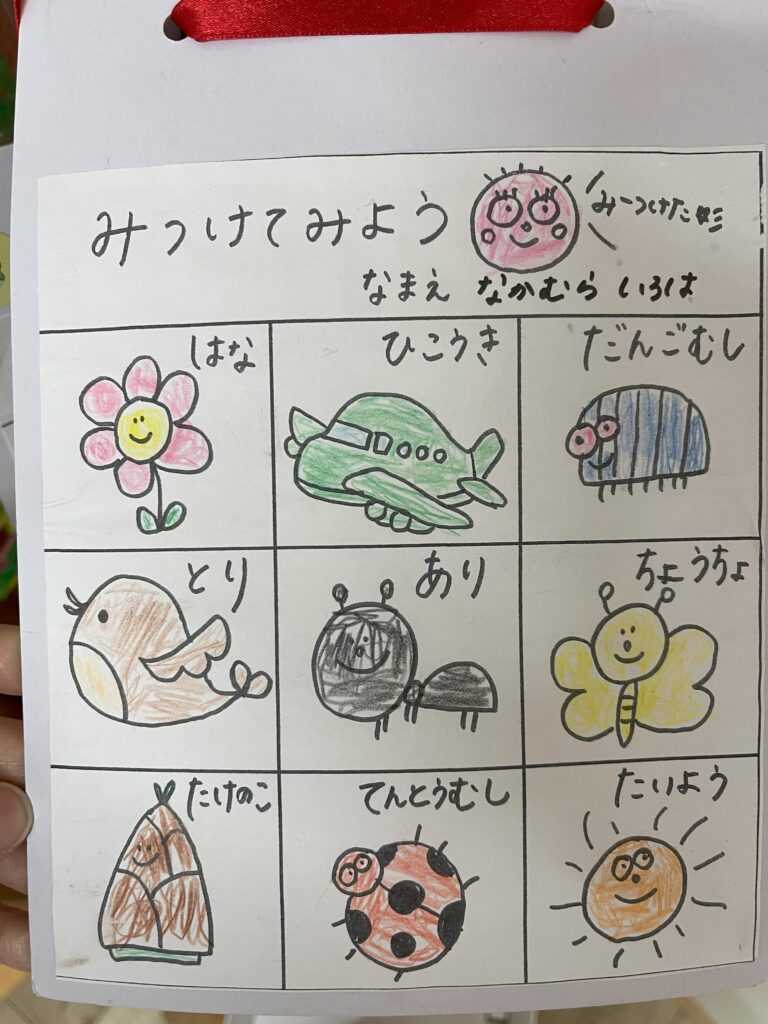 みつけてみよう
みーつけた
なまえ なかむら いろは
はな
ひこうき
だんごむし
とり
あり
ちょうちょ
たけのこ
てんとうむし
たいよう